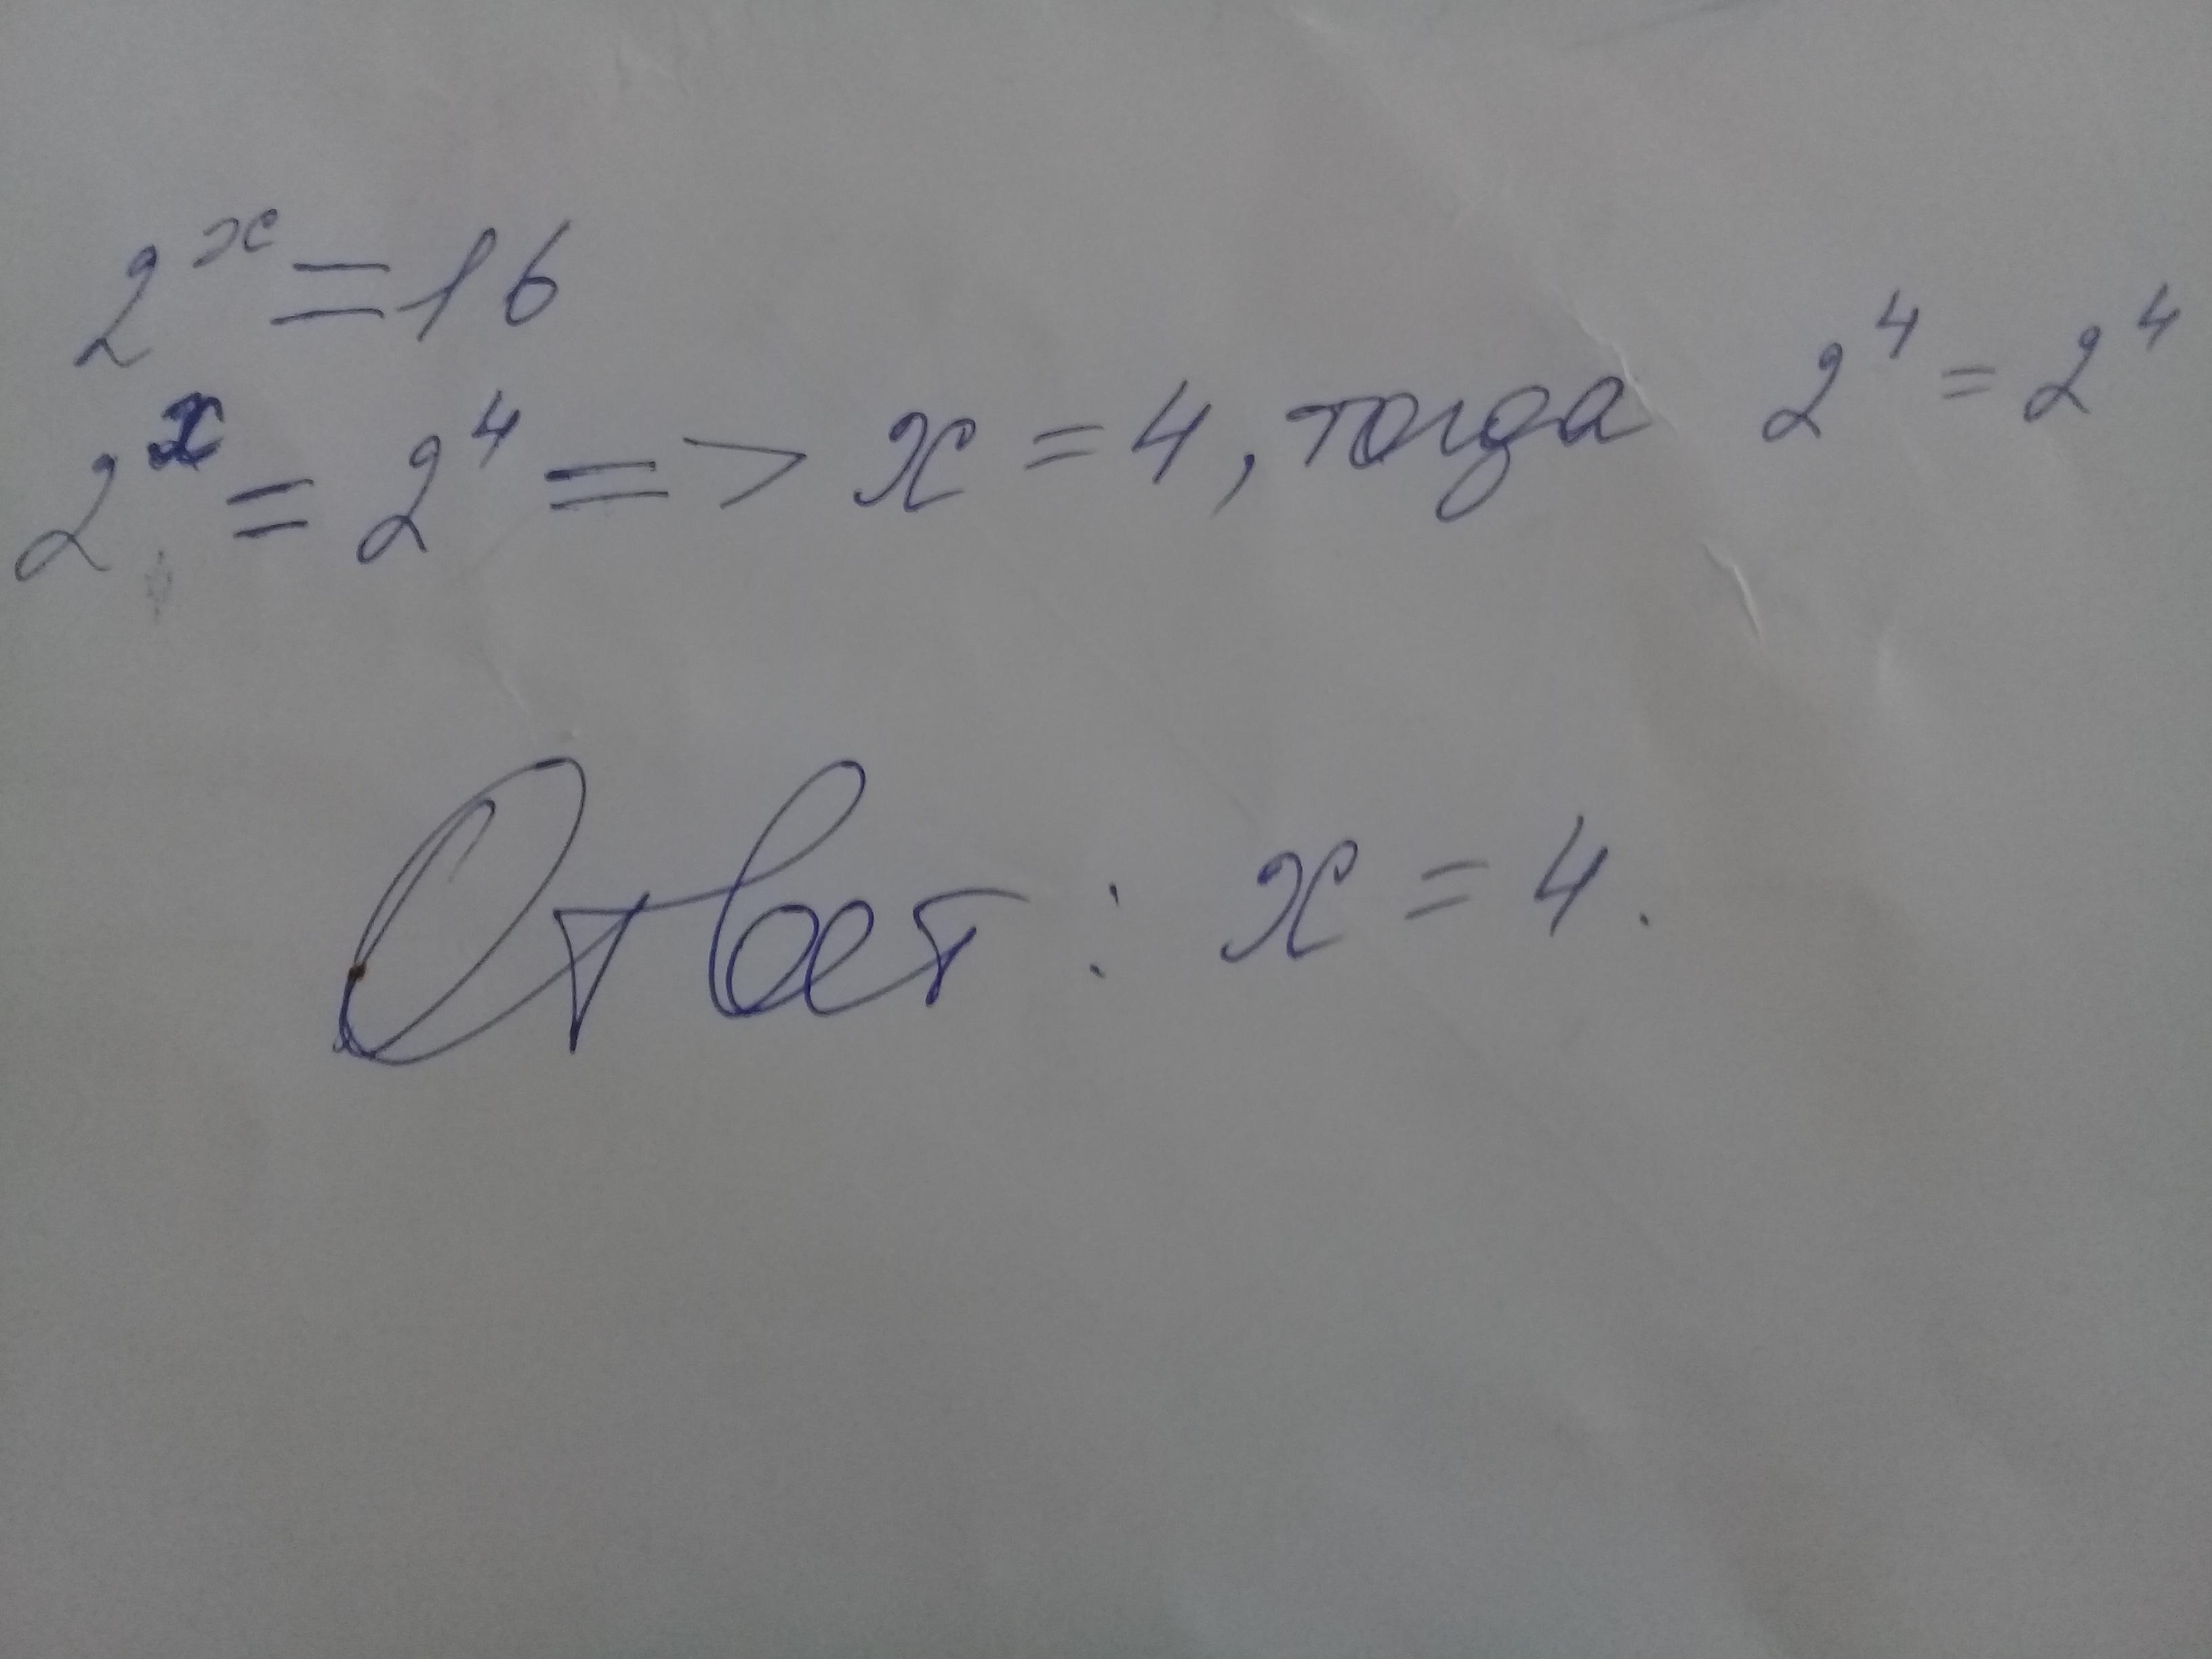 2^x = 16
2^x = 2^4 => x = 4, тогда 2^4 = 2^4
Ответ: x = 4.